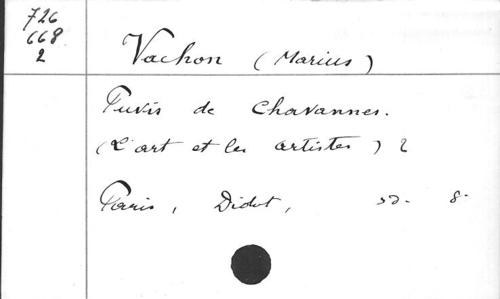 726
668
2
Vachon (Marius)
Puvis de Chavannes.
(L'art et les artistes) 2
Paris, Didot, sd. 8.